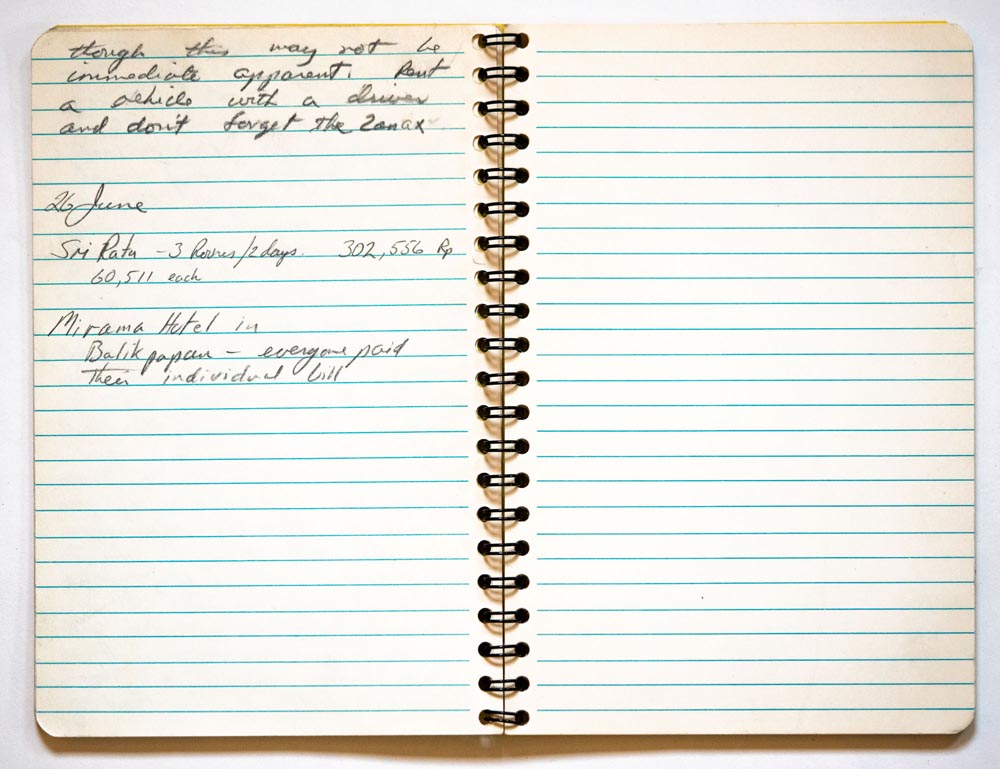 though this may not be
immediate apparent. Rent
a vehicle with a driver
and don't forget the Zanax
26 June
Sri Ratu - 3 hours/2days. 302,556 Rp
60,511 each
Mirama Hotel in
Balikpapan - everyone paid
their individual bill